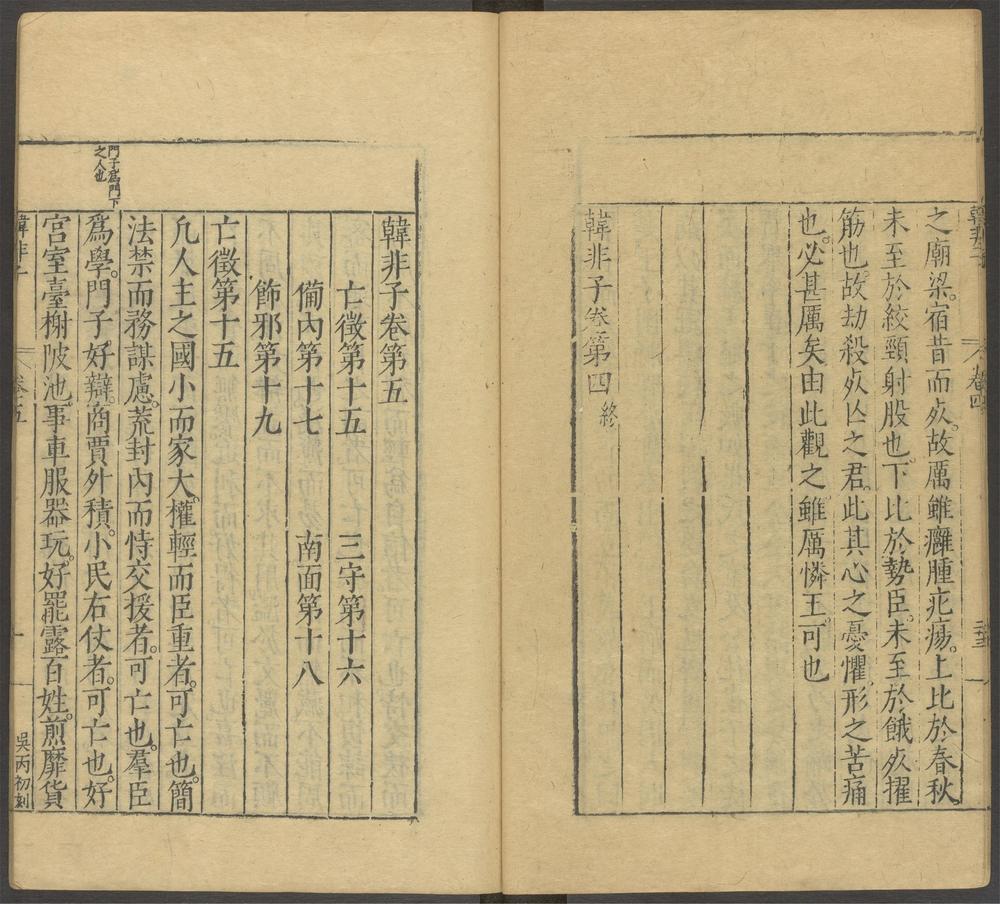 之廟梁。宿昔而死。故厲雖癰腫疕瘍。上比於春秋。
未至於絞頸射股也。下比於勢臣。未至於餓死擢
筋也。故劫殺死亾之君。此其心之憂懼。形之苦痛
也。必甚厲矣由此觀之雖厲憐王。可也
韓非子卷第四 終
韓非子卷第五
亡徵第十五 三守第十六
備內第十七 南面第十八
飾邪第十九
亡徵第十五
凡人主之國小而家大。權輕而臣重者。可亡也。簡
法禁而務謀慮。荒封內而恃交援者。可亡也。羣臣
爲學。門子好辯。商賈外積。小民右仗者。可亡也。好
宮室臺榭陂池。事車服器玩。好罷露百姓。煎靡貨
門子爲門下
之人也
韓非子
卷五
一
吳丙初刻